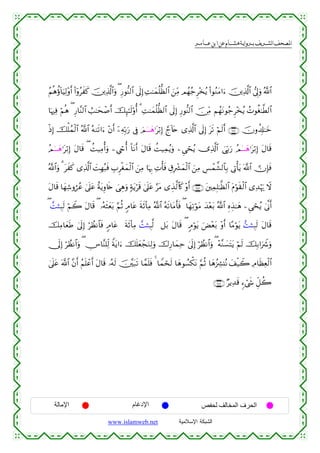 المصحف الشريف برواية هشام عن ابن عامر
ٱللَّهُ وَلِيُّ ٱلَّذِينَ ءَامَنُوا۟ يُخْرِجُهُم مِّنَ ٱلظُّلُمَٰتِ إِلَى ٱلنُّورِ ۖ وَٱلَّذِينَ كَفَرُوٓا۟ أَوْلِيَآؤُهُمُ
ٱلطَّٰغُوتُ يُخْرِجُونَهُم مِّنَ ٱلنُّورِ إِلَى ٱلظُّلُمَٰتِ ۗ أُو۟لَٰٓئِكَ أَصْحَٰبُ ٱلنَّارِ ۖ هُمْ فِيهَا
خَٰلِدُونَ أَلَمْ تَرَ إِلَى ٱلَّذِى حَآجَّ إِبْرَٰهَٰمَ فِى رَبِّهِۦٓ أَنْ ءَاتَىٰهُ ٱللَّهُ ٱلْمُلْكَ إِذْ
قَالَ إِبْرَٰهَٰمُ رَبِّىَ ٱلَّذِى يُحْىِۦ وَيُمِيتُ قَالَ أَنَا۠ أُحْىِۦ وَأُمِيتُ ۖ قَالَ إِبْرَٰهَٰمُ
فَإِنَّ ٱللَّهَ يَأْتِى بِٱلشَّمْسِ مِنَ ٱلْمَشْرِقِ فَأْتِ بِهَا مِنَ ٱلْمَغْرِبِ فَبُهِتَ ٱلَّذِى كَفَرَ ۗ وَٱللَّهُ
لَا يَهْدِى ٱلْقَوْمَ ٱلظَّٰلِمِينَ أَوْ كَٱلَّذِى مَرَّ عَلَىٰ قَرْيَةٍ وَهِىَ خَاوِيَةٌ عَلَىٰ عُرُوشِهَا قَالَ
أَنَّىٰ يُحْىِۦ هَٰذِهِ ٱللَّهُ بَعْدَ مَوْتِهَا ۖ فَأَمَاتَهُ ٱللَّهُ مِا۟ئَةَ عَامٍ ثُمَّ بَعَثَهُۥ ۖ قَالَ كَمْ لَبِثتَّ ۖ
قَالَ لَبِثتُّ يَوْمًا أَوْ بَعْضَ يَوْمٍ ۖ قَالَ بَل لَّبِثتَّ مِا۟ئَةَ عَامٍ فَٱنظُرْ إِلَىٰ طَعَامِكَ
وَشَرَابِكَ لَمْ يَتَسَنَّهْ ۖ وَٱنظُرْ إِلَىٰ حِمَارِكَ وَلِنَجْعَلَكَ ءَايَةً لِّلنَّاسِ ۖ وَٱنظُرْ إِلَى
ٱلْعِظَامِ كَيْفَ نُنشِزُهَا ثُمَّ نَكْسُوهَا لَحْمًا ۚ فَلَمَّا تَبَيَّنَ لَهُۥ قَالَ أَعْلَمُ أَنَّ ٱللَّهَ عَلَىٰ
كُلِّ شَىْءٍ قَدِيرٌ
الحرف المخالف لحفص الإدغام الإمالة
الشبكة الإسلامية www.islamweb.net